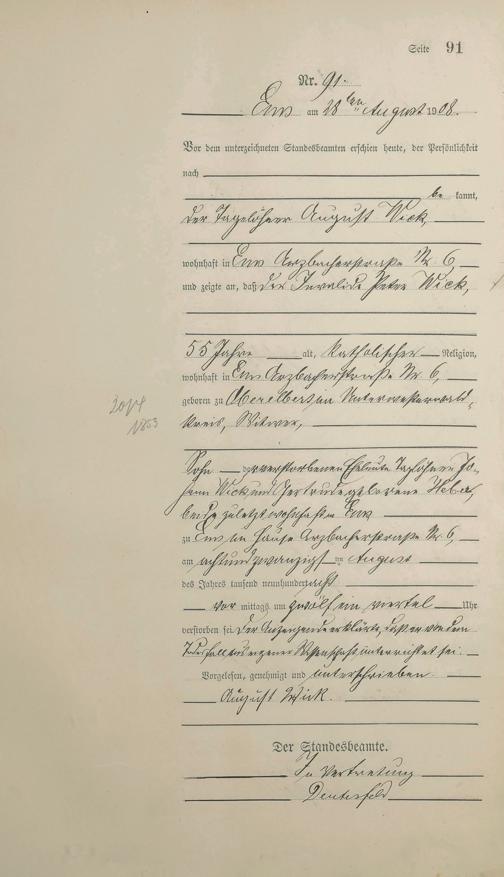 Seite 91
Nr. 91.
Ems am 28ten August 1908.
Vor dem unterzeichneten Standesbeamten erschien heute, der Persönlichkeit
nach
be kannt,
der Tagelöhner August Wick,
wohnhaft in Ems Arzbacherstraße Nr. 6,
und zeigte an, daß der Invalide Peter Wick,
55 Jahre alt, katholischer Religion,
wohnhaft in Ems Arzbacherstraße Nr. 6,
geboren zu Oberelbert im Unterwesterwald-
kreis, Witwer,
1853
Sohn der verstorbenen Eheleute Taglöhner Jo-
hann Wick und Gertrude geborene
beide zuletzt wohnhaft in Ems
zu Ems im Hause Arzbacherstraße Nr. 6,
am achtundzwanzigsten August
des Jahres tausend neunhundert acht
vor mittags um zwölf ein viertel Uhr
verstorben sei. Der Anzeigende erklärte, daß er von dem
Todesfall aus eigener Wissenschaft unterrichtet sei.
Vorgelesen, genehmigt und unterschrieben
August Wick.
Der Standesbeamte.
In Vertretung